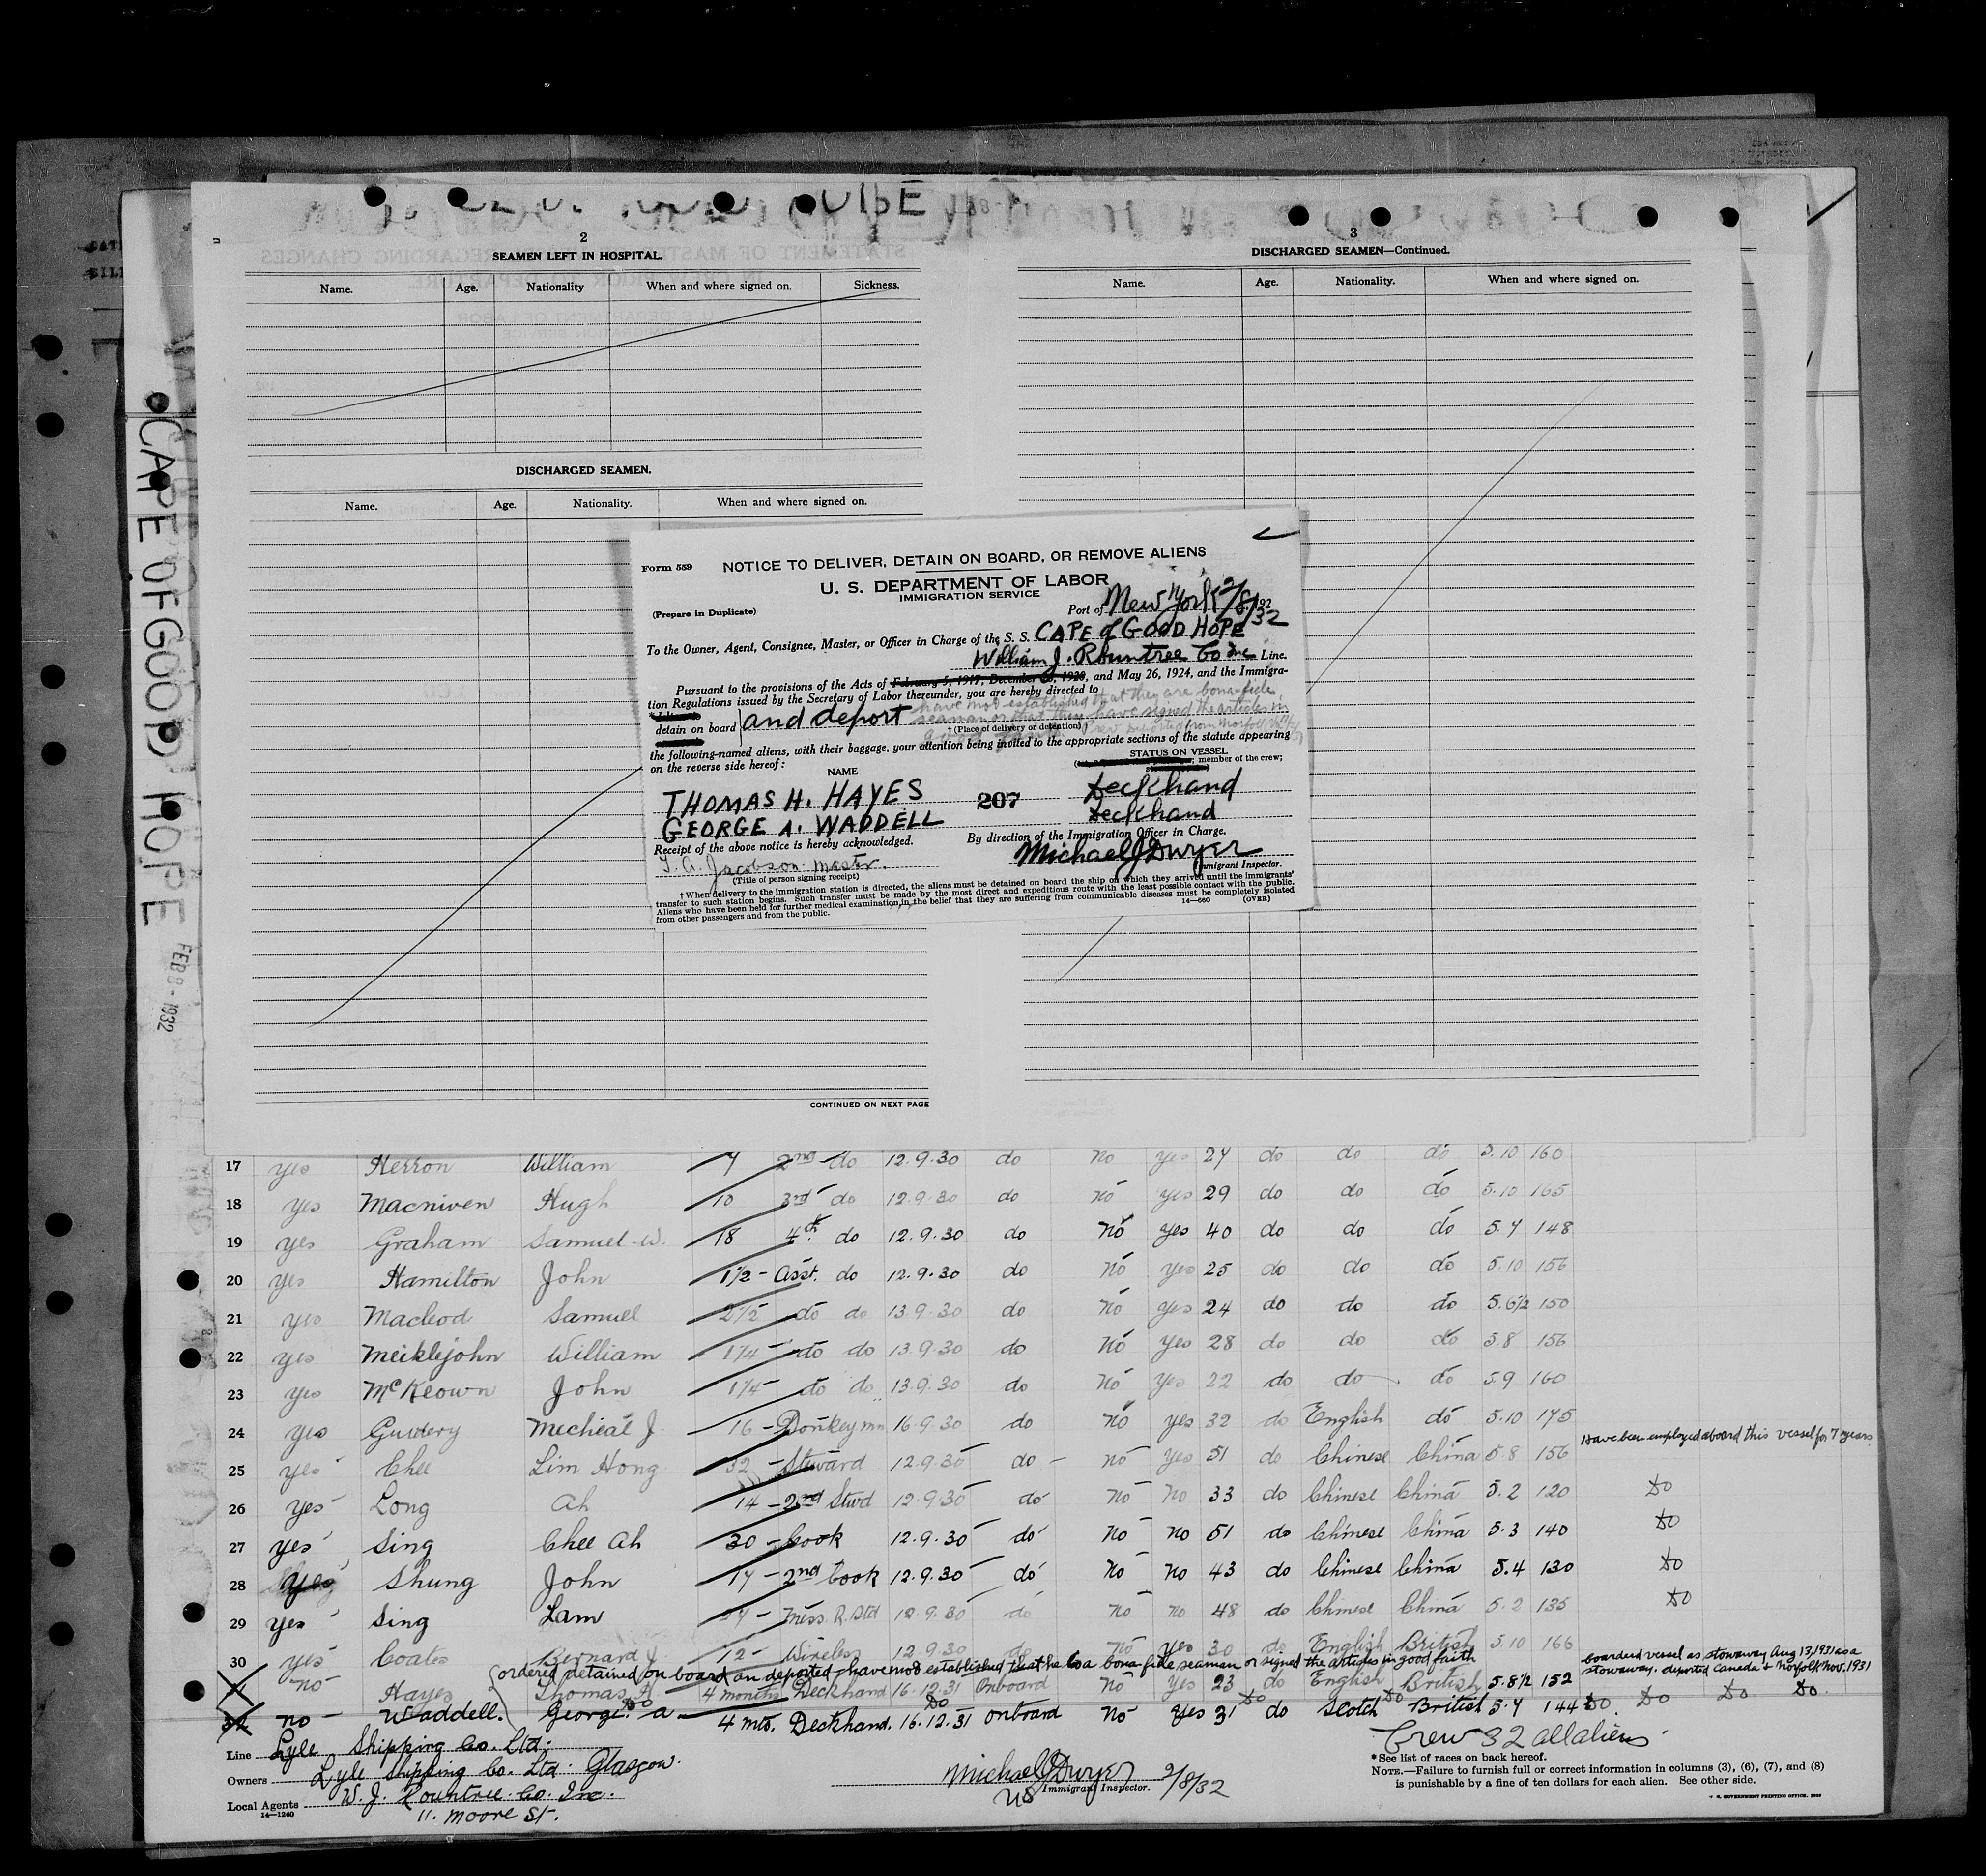 CAPE OF GOOD HOPE
FEB 8 - 1932
2
SEAMEN LEFT IN HOSPITAL.
Name. Age. Nationality When and where signed on. Sickness.
DISCHARGED SEAMEN.
Name. Age. Nationality. When and where signed on.
CONTINUED ON NEXT PAGE
3
DISCHARGED SEAMEN—Continued.
Name. Age. Nationality. When and where signed on.
Form 559 NOTICE TO DELIVER, DETAIN ON BOARD, OR REMOVE ALIENS
U. S. DEPARTMENT OF LABOR
IMMIGRATION SERVICE
(Prepare in Duplicate)
Port of New York 2/8/32
To the Owner, Agent, Consignee, Master, or Officer in Charge of the S. S. CAPE of GOOD HOPE
William J. Rountree Co Inc Line.
Pursuant to the provisions of the Acts of February 5, 1917, December 26, 1920, and May 26, 1924, and the Immigra-
tion Regulations issued by the Secretary of Labor thereunder, you are hereby directed to
have not established that they are bona-fide
detain on board and deport seaman or that they have signed the articles in
good faith
† (Place of delivery or detention)
the following-named aliens, with their baggage, your attention being invited to the appropriate sections of the statute appearing
on the reverse side hereof:
STATUS ON VESSEL
member of the crew;
NAME
THOMAS H. HAYES 207 Deckhand
GEORGE A. WADDELL Deckhand
Receipt of the above notice is hereby acknowledged. By direction of the Immigration Officer in Charge.
Jacobson master. Michael J Dwyer
(Title of person signing receipt) Immigrant Inspector.
† When delivery to the immigration station is directed, the aliens must be detained on board the ship on which they arrived until the immigrants'
transfer to such station begins. Such transfer must be made by the most direct and expeditious route with the least possible contact with the public.
Aliens who have been held for further medical examination in the belief that they are suffering from communicable diseases must be completely isolated
from other passengers and from the public. 14—660 (OVER)
17 yes Herron William 7 2nd do 12.9.30 do No yes 27 do do do 5.10 160
18 yes Macniven Hugh 10 3rd do 12.9.30 do No yes 29 do do do 5.10 165
19 yes Graham Samuel W. 18 4th do 12.9.30 do No yes 40 do do do 5.7 148
20 yes Hamilton John 1 1/2 Asst. do 12.9.30 do No yes 25 do do do 5.10 156
21 yes Macleod Samuel 2 1/2 do do 13.9.30 do No yes 24 do do do 5.6 1/2 150
22 yes Meiklejohn William 1 1/4 do do 13.9.30 do No yes 28 do do do 5.8 156
23 yes McKeown John 1 1/4 do do 13.9.30 do No yes 22 do do do 5.9 160
24 yes Micheal J. 16 Donkeymn 16.9.30 do No yes 32 do English do 5.10 175
Have been employed aboard this vessel for 7 years
25 yes Chee Lim Hong 32 Steward 12.9.30 do No yes 51 do Chinese China 5.8 156
26 yes Long Ah 14 2nd Stwd 12.9.30 do No No 33 do Chinese China 5.2 120 Do
27 yes Sing Chee Ah 30 Cook 12.9.30 do No no 51 do Chinese China 5.3 140 Do
28 yes Shung John 17 2nd Cook 12.9.30 do No no 43 do Chinese China 5.4 130 Do
29 yes Sing Lam Mess. R. Std 12.9.30 do No no 48 do Chinese China 5.2 135 Do
30 yes Coates Bernard J. 12 Wireless 12.9.30 do No yes 30 do English British 5.10 166
ordered detained on board an deported, have not established that he is a bona-fide seaman or signed the articles in good faith
boarded vessel as stowaway Aug 13, 1931 as a
stowaway. deported Canada & Norfolk Nov. 1931
31 no Hayes Thomas H. 4 months Deckhand 16.12.31 Onboard No yes 23 do English British 5.8 1/2 152
Do Do Do Do
32 no Waddell. George. A 4 mts. Deckhand. 16.12.31 onboard No yes 31 do Scotch British 5.7 144 Do Do Do Do
Crew 32 all aliens
Line Lyle Shipping Co. Ltd.
Owners Lyle Shipping Co. Ltd. Glasgow.
Local Agents W. J. Rountree Co. Inc.
14—1240
11. Moore St.
Michael J Dwyer 2/8/32
US Immigrant Inspector.
* See list of races on back hereof.
NOTE.—Failure to furnish full or correct information in columns (3), (6), (7), and (8)
is punishable by a fine of ten dollars for each alien. See other side.
U. S. GOVERNMENT PRINTING OFFICE